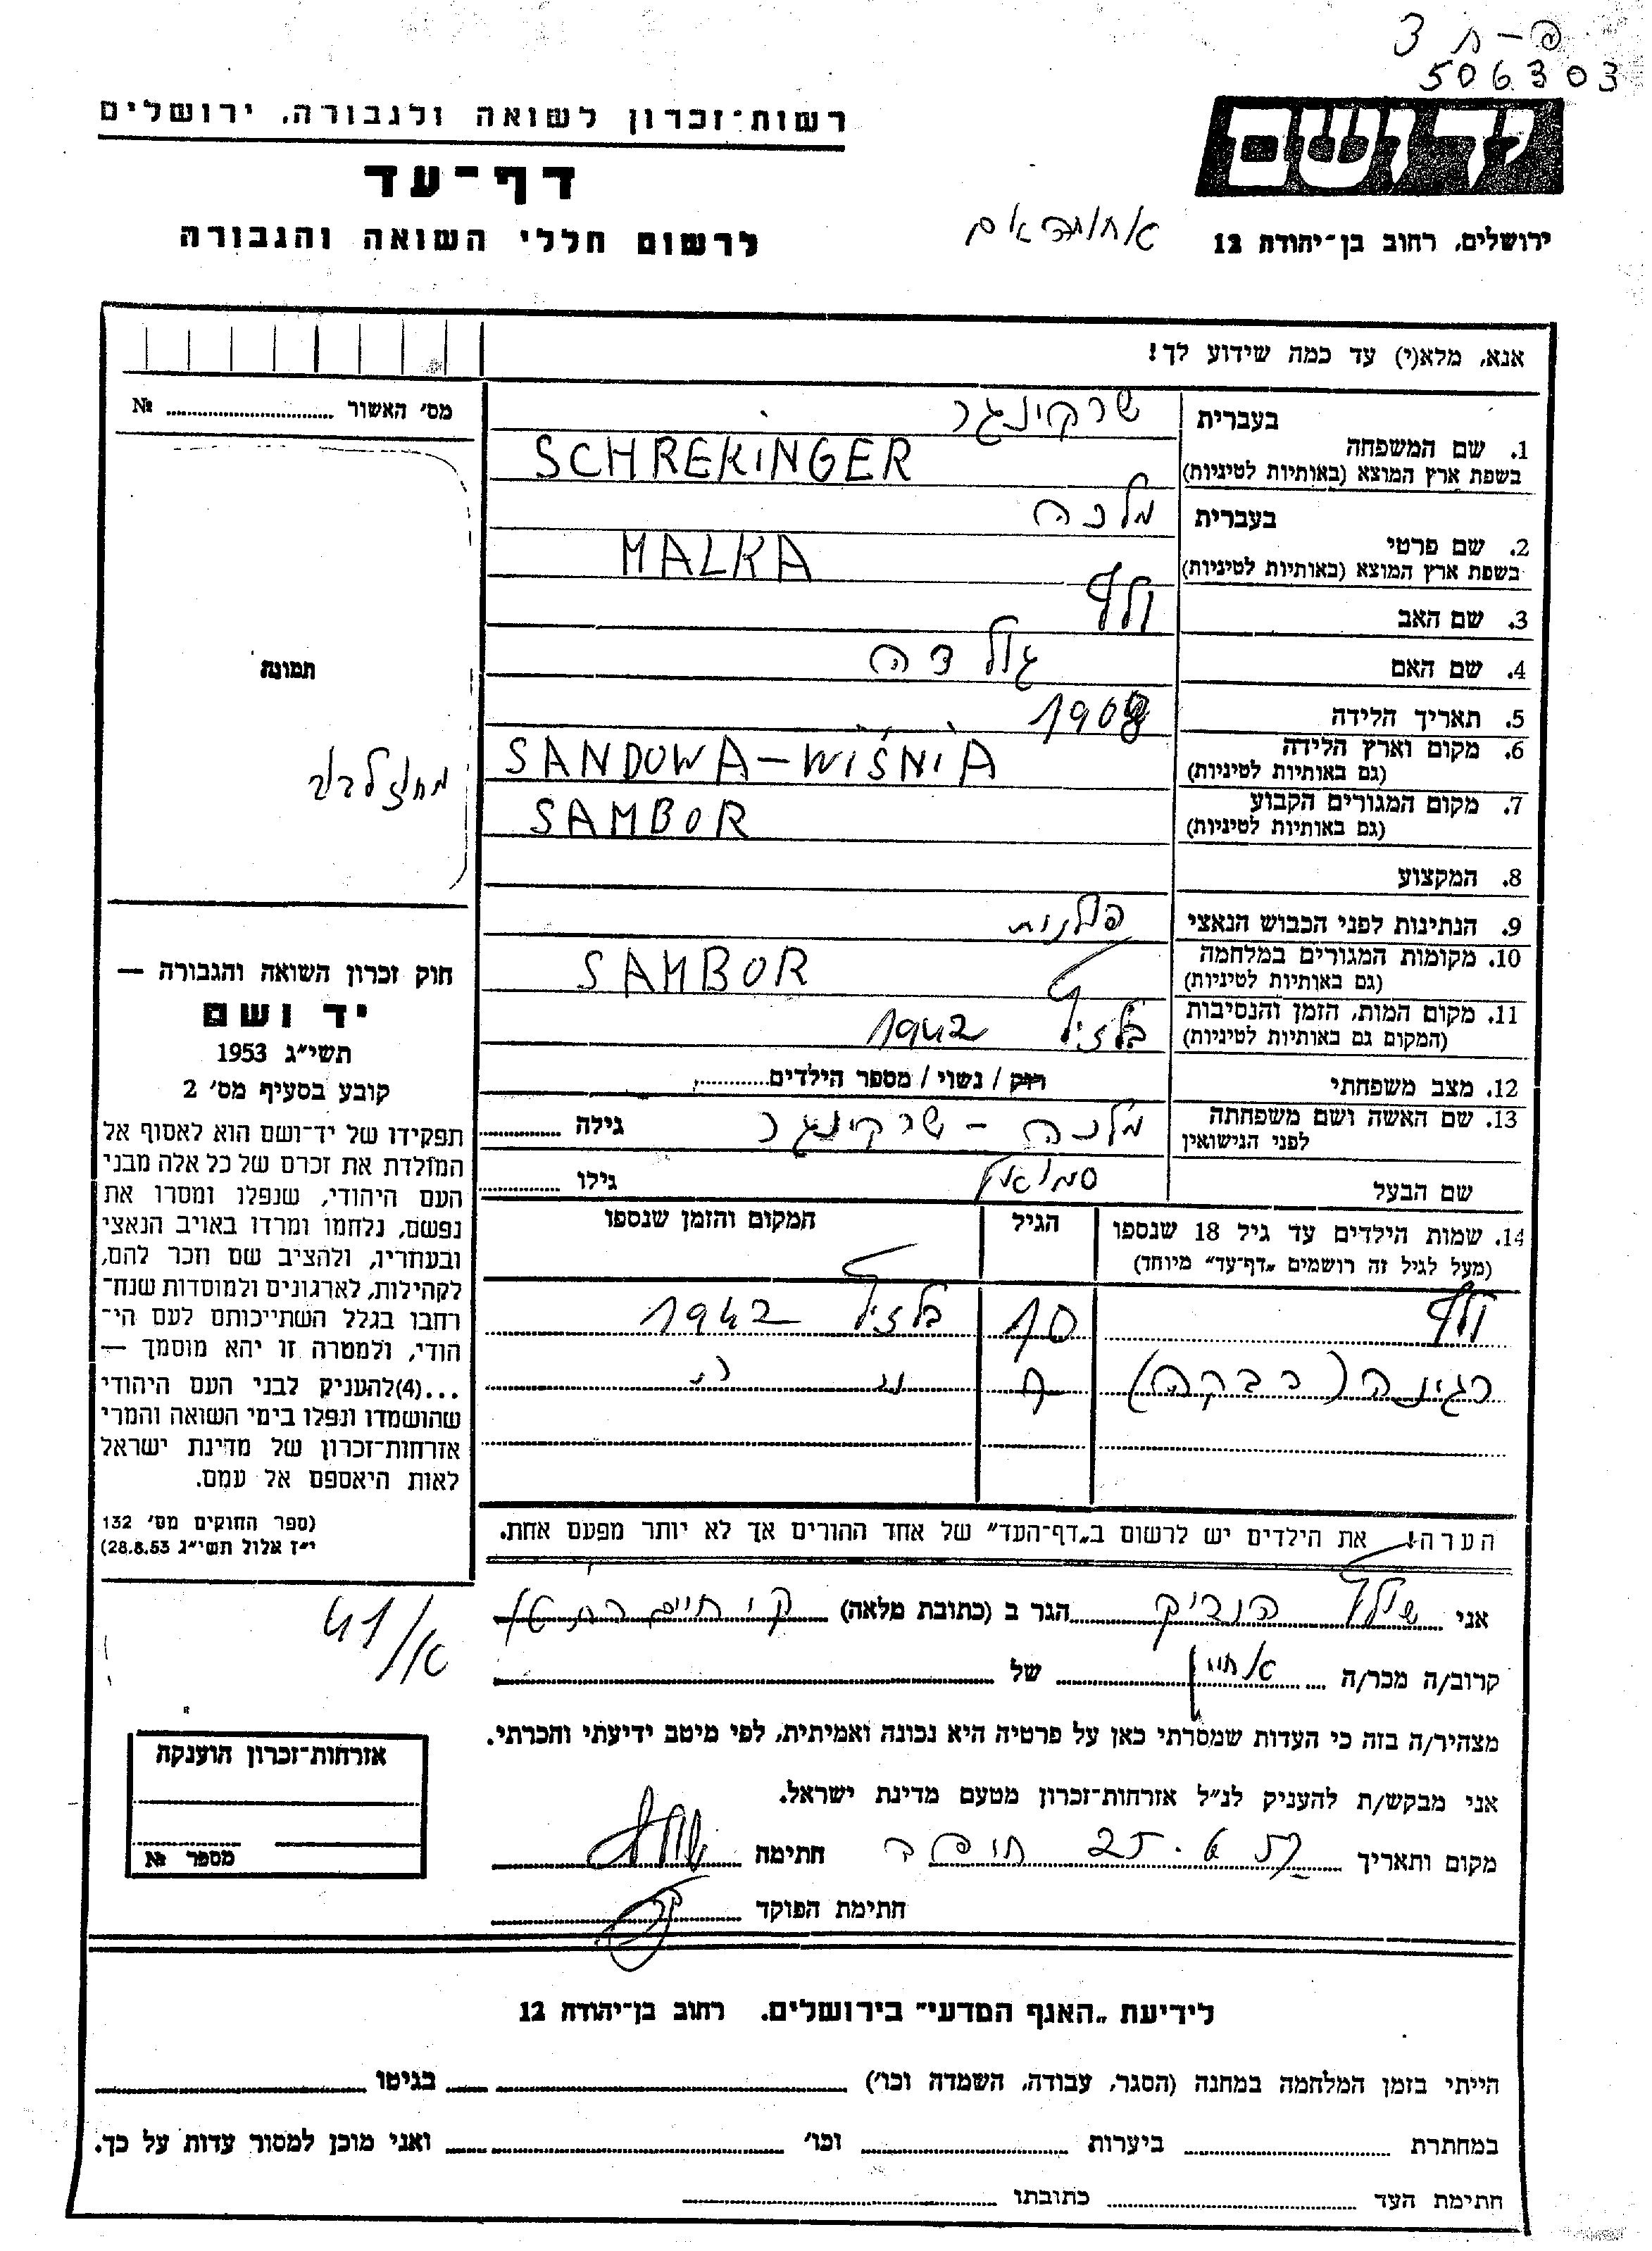 פ-ח 3
506303
רשות־זכרון לשואה ולגבורה, ירושלים
ידושם
דף־עד
לרשום חללי השואה והגבורה
ירושלים, רחוב בן־יהודה 12
אנא, מלא(י) עד כמה שידוע לך!
מס׳ האשור № 
בעברית שרקינגר
1. שם המשפחה
בשפת ארץ המוצא (באותיות לטיניות) SCHREKINGER
בעברית מלכה
2. שם פרטי
בשפת ארץ המוצא (באותיות לטיניות) MALKA
3. שם האב וולף
4. שם האם גולדה
5. תאריך הלידה 1908
6. מקום וארץ הלידה
(גם באותיות לטיניות) SANDOWA-WIŚNIA
7. מקום המגורים הקבוע
(גם באותיות לטיניות) SAMBOR
8. המקצוע
9. הנתינות לפני הכבוש הנאצי פולנית
10. מקומות המגורים במלחמה
(גם באותיות לטיניות) SAMBOR
11. מקום המות, הזמן והנסיבות
(המקום גם באותיות לטיניות) בלזץ 1942
12. מצב משפחתי רוק / נשוי / מספר הילדים
13. שם האשה ושם משפחתה
לפני הנישואין מלכה - שרקינגר גילה
שם הבעל סמואל גילו
14. שמות הילדים עד גיל 18 שנספו
(מעל לגיל זה רושמים „דף־עד״ מיוחד)
הגיל
המקום והזמן שנספו
וולף 10 בלזץ 1942
רגינה (רבקה) 8 " "
הערה! את הילדים יש לרשום ב„דף־העד״ של אחד ההורים אך לא יותר מפעם אחת.
תמונה
מחוז לבוב
חוק זכרון השואה והגבורה —
יד ושם
תשי״ג 1953
קובע בסעיף מס׳ 2
תפקידו של יד־ושם הוא לאסוף אל
המולדת את זכרם של כל אלה מבני
העם היהודי, שנפלו ומסרו את
נפשם, נלחמו ומרדו באויב הנאצי
ובעוזריו, ולהציב שם וזכר להם,
לקהילות, לארגונים ולמוסדות שנח־
רבו בגלל השתייכותם לעם הי־
הודי, ולמטרה זו יהא מוסמך —
...(4) להעניק לבני העם היהודי
שהושמדו ונפלו בימי השואה והמרי
אזרחות־זכרון של מדינת ישראל
לאות היאספם אל עמם.
(ספר החוקים מס׳ 132
י״ז אלול תשי״ג 28.8.53)
אני הנדיק הגר ב (כתובת מלאה) ק׳ חיים
קרוב/ה מכר/ה של
מצהיר/ה בזה כי העדות שמסרתי כאן על פרטיה היא נכונה ואמיתית, לפי מיטב ידיעתי והכרתי.
אני מבקש/ת להעניק לנ״ל אזרחות־זכרון מטעם מדינת ישראל.
מקום ותאריך חיפה 25. חתימה
חתימת הפוקד
אזרחות־זכרון הוענקה
מספר №
לידיעת „האגף המדעי״ בירושלים. רחוב בן־יהודה 12
הייתי בזמן המלחמה במחנה (הסגר, עבודה, השמדה וכו׳) בגיטו
במחתרת ביערות וכו׳ ואני מוכן למסור עדות על כך.
חתימת העד כתובתו